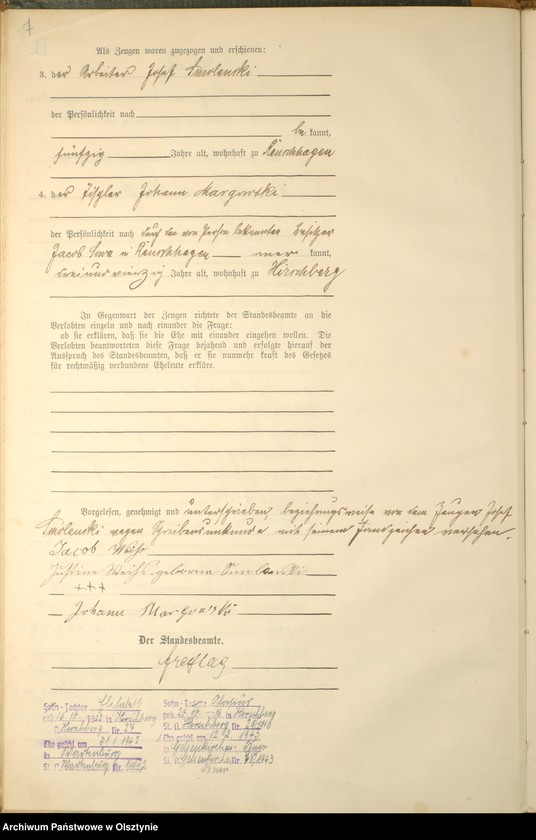 Als Zeugen waren zugezogen und erschienen:
3. der Arbeiter Josef Smolenski
der Persönlichkeit nach
be kannt,
fünfzig Jahre alt, wohnhaft zu Reuschhagen
4. der Tischler Johann Margowski
der Persönlichkeit nach durch den von Person bekannten Besitzer
Jacob Sowa in Reuschhagen aner kannt,
dreiundvierzig Jahre alt, wohnhaft zu Hirschberg
In Gegenwart der Zeugen richtete der Standesbeamte an die
Verlobten einzeln und nach einander die Frage:
ob sie erklären, daß sie die Ehe mit einander eingehen wollen. Die
Verlobten beantworteten diese Frage bejahend und erfolgte hierauf der
Ausspruch des Standesbeamten, daß er sie nunmehr kraft des Gesetzes
für rechtmäßig verbundene Eheleute erkläre.
Vorgelesen, genehmigt und unterschrieben, beziehungsweise von dem Zeugen Josef
Smolenski wegen Schreibensunkunde mit seinem Handzeichen versehen.
Jacob
Justine geborene Smolenski
+++
Johann Margowski
Der Standesbeamte.
Freitag
Sohn-Tochter
in Hirschberg
Hirschberg Nr. 24
Ehe geschl. am 1943
in Wartenburg
St. A. Wartenburg Nr.
Sohn-
geb. in Hirschberg
St. A. Hirschberg Nr.
Ehe geschl. am 1943
in Gelsenkirchen-Buer
St. A. Gelsenkirchen Nr.
Buer
Archiwum Państwowe w Olsztynie